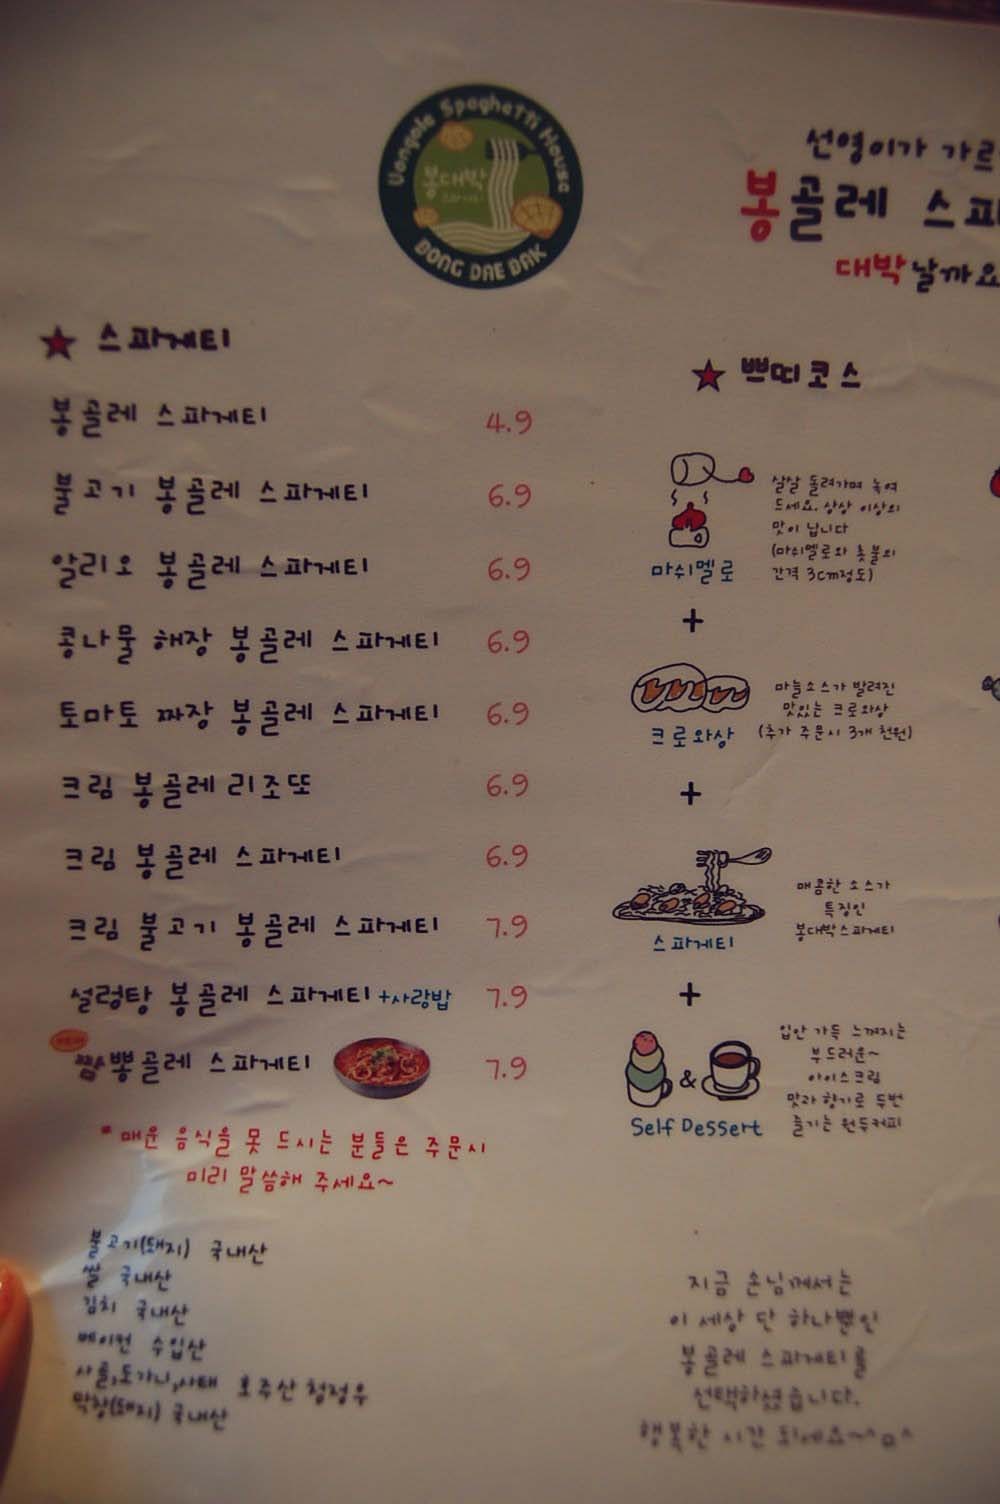 Vongole Spaghetti House
봉대박
BONG DAE BAK
선영이가 가르
봉골레 스파
대박날까요
★ 스파게티
봉골레 스파게티 4.9
불고기 봉골레 스파게티 6.9
알리오 봉골레 스파게티 6.9
콩나물 해장 봉골레 스파게티 6.9
토마토 짜장 봉골레 스파게티 6.9
크림 봉골레 리조또 6.9
크림 봉골레 스파게티 6.9
크림 불고기 봉골레 스파게티 7.9
설렁탕 봉골레 스파게티 +사랑밥 7.9
짬뽕골레 스파게티 7.9
* 매운 음식을 못 드시는 분들은 주문시
미리 말씀해 주세요~
불고기(돼지) 국내산
쌀 국내산
김치 국내산
베이컨 수입산
사골,도가니,사태 호주산 청정우
막창(돼지) 국내산
★ 쁘띠코스
살살 돌려가며 녹여
드세요. 상상 이상의
맛이 납니다
(마쉬멜로와 촛불의
간격 3cm정도)
마쉬멜로
+
마늘소스가 발려진
맛있는 크로와상
(추가 주문시 3개 천원)
크로와상
+
매콤한 소스가
특징인
봉대박스파게티
스파게티
+
입안 가득 느껴지는
부드러운~
아이스크림
맛과 향기로 두번
즐기는 원두커피
&
Self Dessert
지금 손님께서는
이 세상 단 하나뿐인
봉골레 스파게티를
선택하셨습니다.
행복한 시간 되세요~^ㅁ^